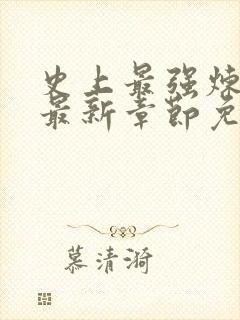 史上最强炼
最新章节免
慕清漪